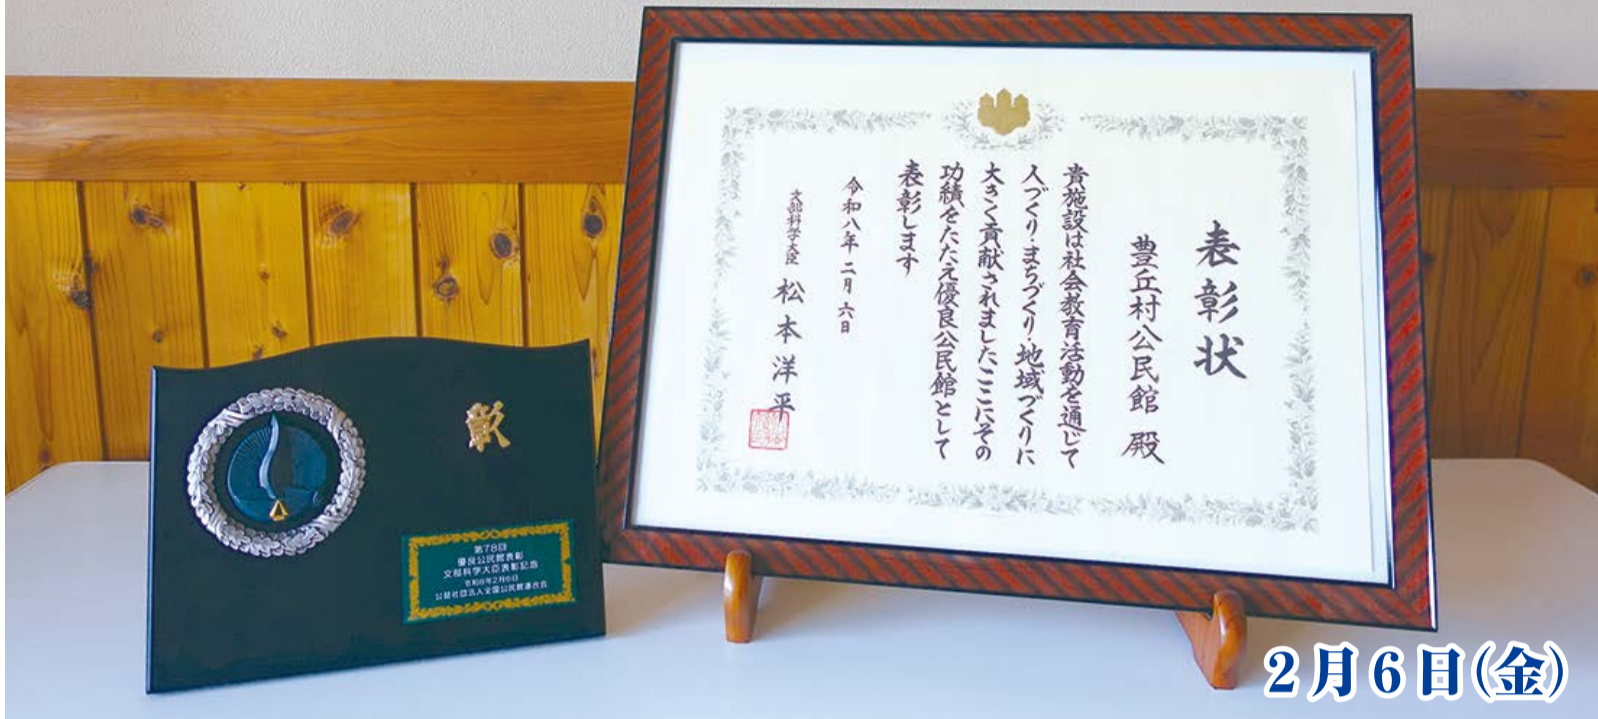 表彰状
豊丘村公民館 殿
貴施設は社会教育活動を通じて
人づくり・まちづくり・地域づくりに
大きく貢献されましたここにその
功績をたたえ優良公民館として
表彰します
令和八年二月六日
文部科学大臣 松本洋平
彰
第78回
優良公民館表彰
文部科学大臣表彰記念
令和8年2月6日
公益社団法人全国公民館連合会
2月6日(金)